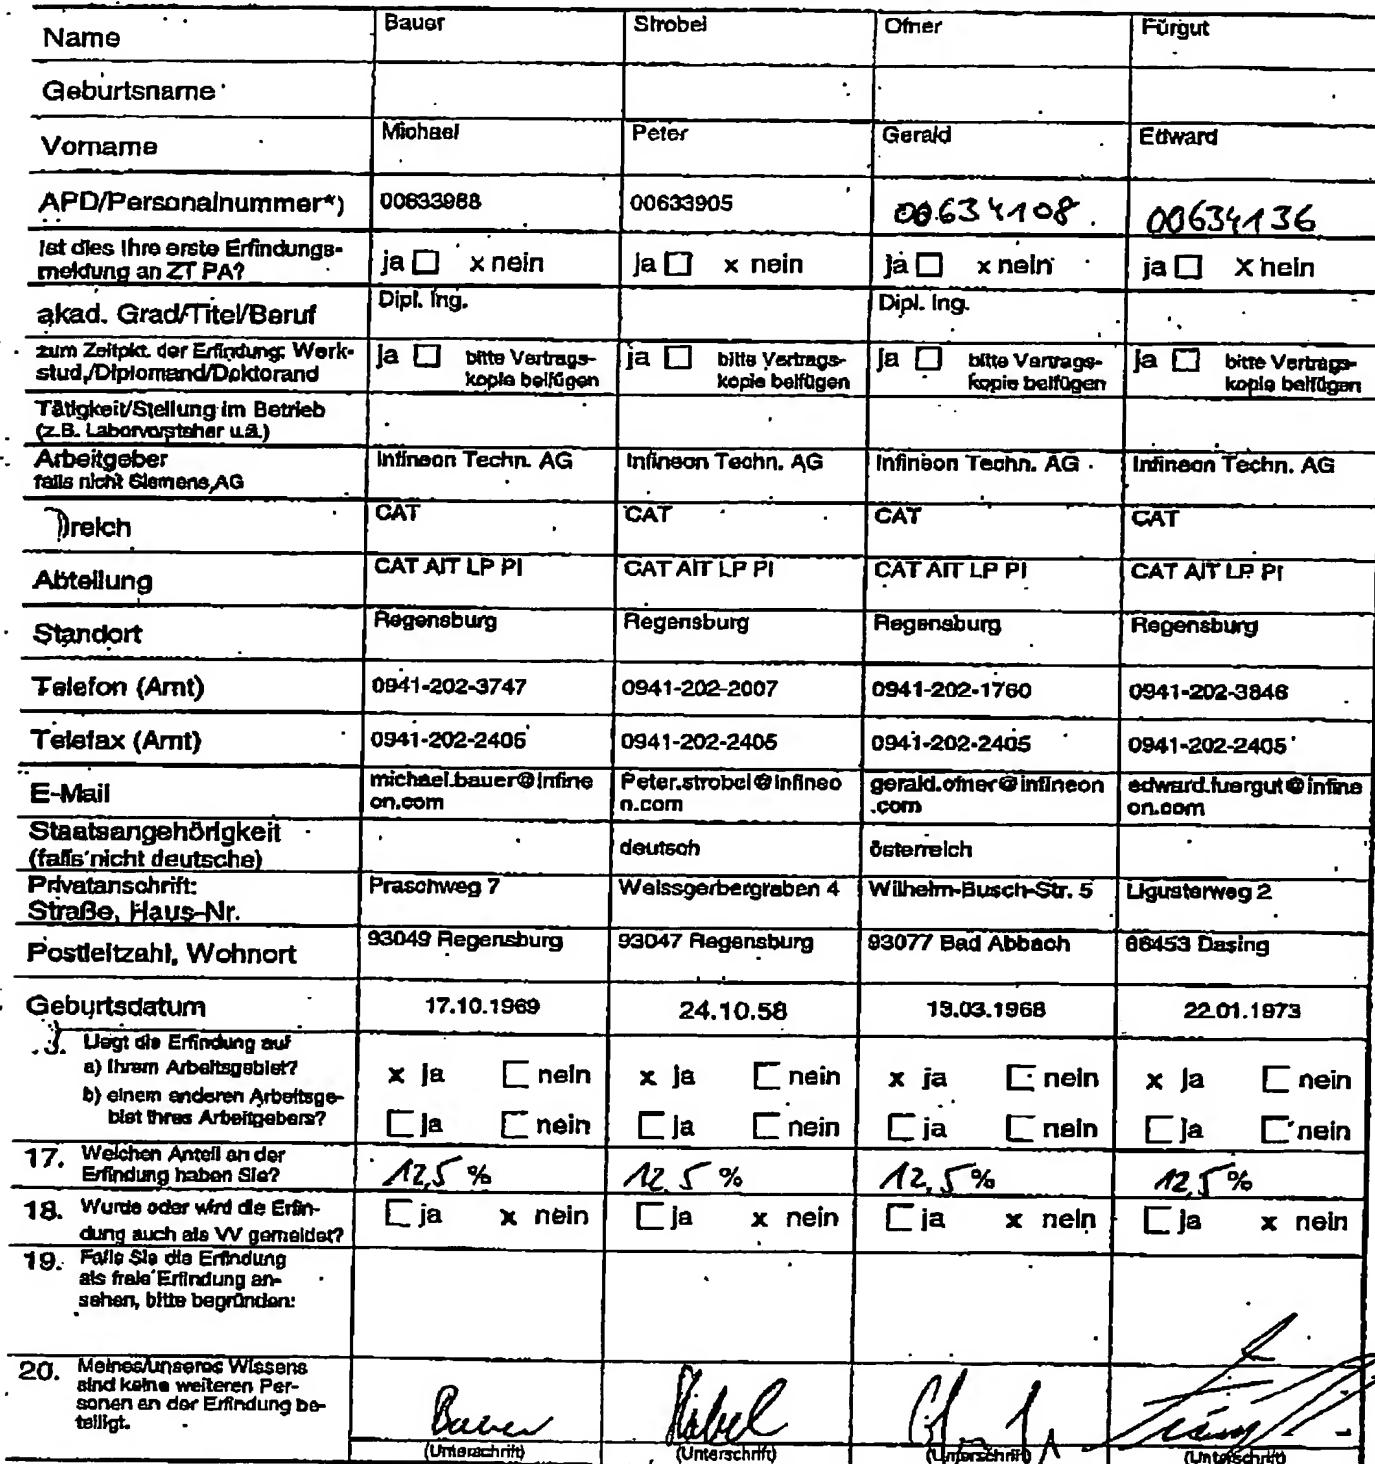 Name Bauer Strobel Ofner Fürgut
Geburtsname
Vorname Michael Peter Gerald Edward
APD/Personalnummer*) 00633988 00633905 00634108 00634136
Ist dies Ihre erste Erfindungs- ja ☐ x nein ja ☐ x nein ja ☐ x nein ja ☐ x nein
meldung an ZT PA?
akad. Grad/Titel/Beruf Dipl. Ing. Dipl. Ing.
zum Zeitpkt. der Erfindung: Werk- ja ☐ bitte Vertrags- ja ☐ bitte Vertrags- ja ☐ bitte Vertrags- ja ☐ bitte Vertrags-
stud./Diplomand/Doktorand kopie beifügen kopie beifügen kopie beifügen kopie beifügen
Tätigkeit/Stellung im Betrieb
(z.B. Laborvorsteher u.ä.)
Arbeitgeber Infineon Techn. AG Infineon Techn. AG Infineon Techn. AG Infineon Techn. AG
falls nicht Siemens AG
reich CAT CAT CAT CAT
Abteilung CAT AIT LP PI CAT AIT LP PI CAT AIT LP PI CAT AIT LP PI
Standort Regensburg Regensburg Regensburg Regensburg
Telefon (Amt) 0941-202-3747 0941-202-2007 0941-202-1760 0941-202-3846
Telefax (Amt) 0941-202-2405 0941-202-2405 0941-202-2405 0941-202-2405
E-Mail michael.bauer@infine Peter.strobel@infineo gerald.ofner@infineon edward.fuergut@infine
on.com n.com .com on.com
Staatsangehörigkeit
(falls nicht deutsche) deutsch österreich
Privatanschrift: Praschweg 7 Weissgerbergraben 4 Wilhelm-Busch-Str. 5 Ligusterweg 2
Straße, Haus-Nr.
Postleitzahl, Wohnort 93049 Regensburg 93047 Regensburg 93077 Bad Abbach 86453 Dasing
Geburtsdatum 17.10.1969 24.10.58 13.03.1968 22.01.1973
Liegt die Erfindung auf
a) Ihrem Arbeitsgebiet? x ja ☐ nein x ja ☐ nein x ja ☐ nein x ja ☐ nein
b) einem anderen Arbeitsge-
biet Ihres Arbeitgebers? ☐ ja ☐ nein ☐ ja ☐ nein ☐ ja ☐ nein ☐ ja ☐ nein
17. Welchen Anteil an der
Erfindung haben Sie? 12,5 % 12,5 % 12,5 % 12,5 %
18. Wurde oder wird die Erfin- ☐ ja x nein ☐ ja x nein ☐ ja x nein ☐ ja x nein
dung auch als VV gemeldet?
19. Falls Sie die Erfindung
als freie Erfindung an-
sehen, bitte begründen:
20. Meines/unseres Wissens
sind keine weiteren Per-
sonen an der Erfindung be-
teiligt. Bauer Strobel
(Unterschrift) (Unterschrift) (Unterschrift) (Unterschrift)